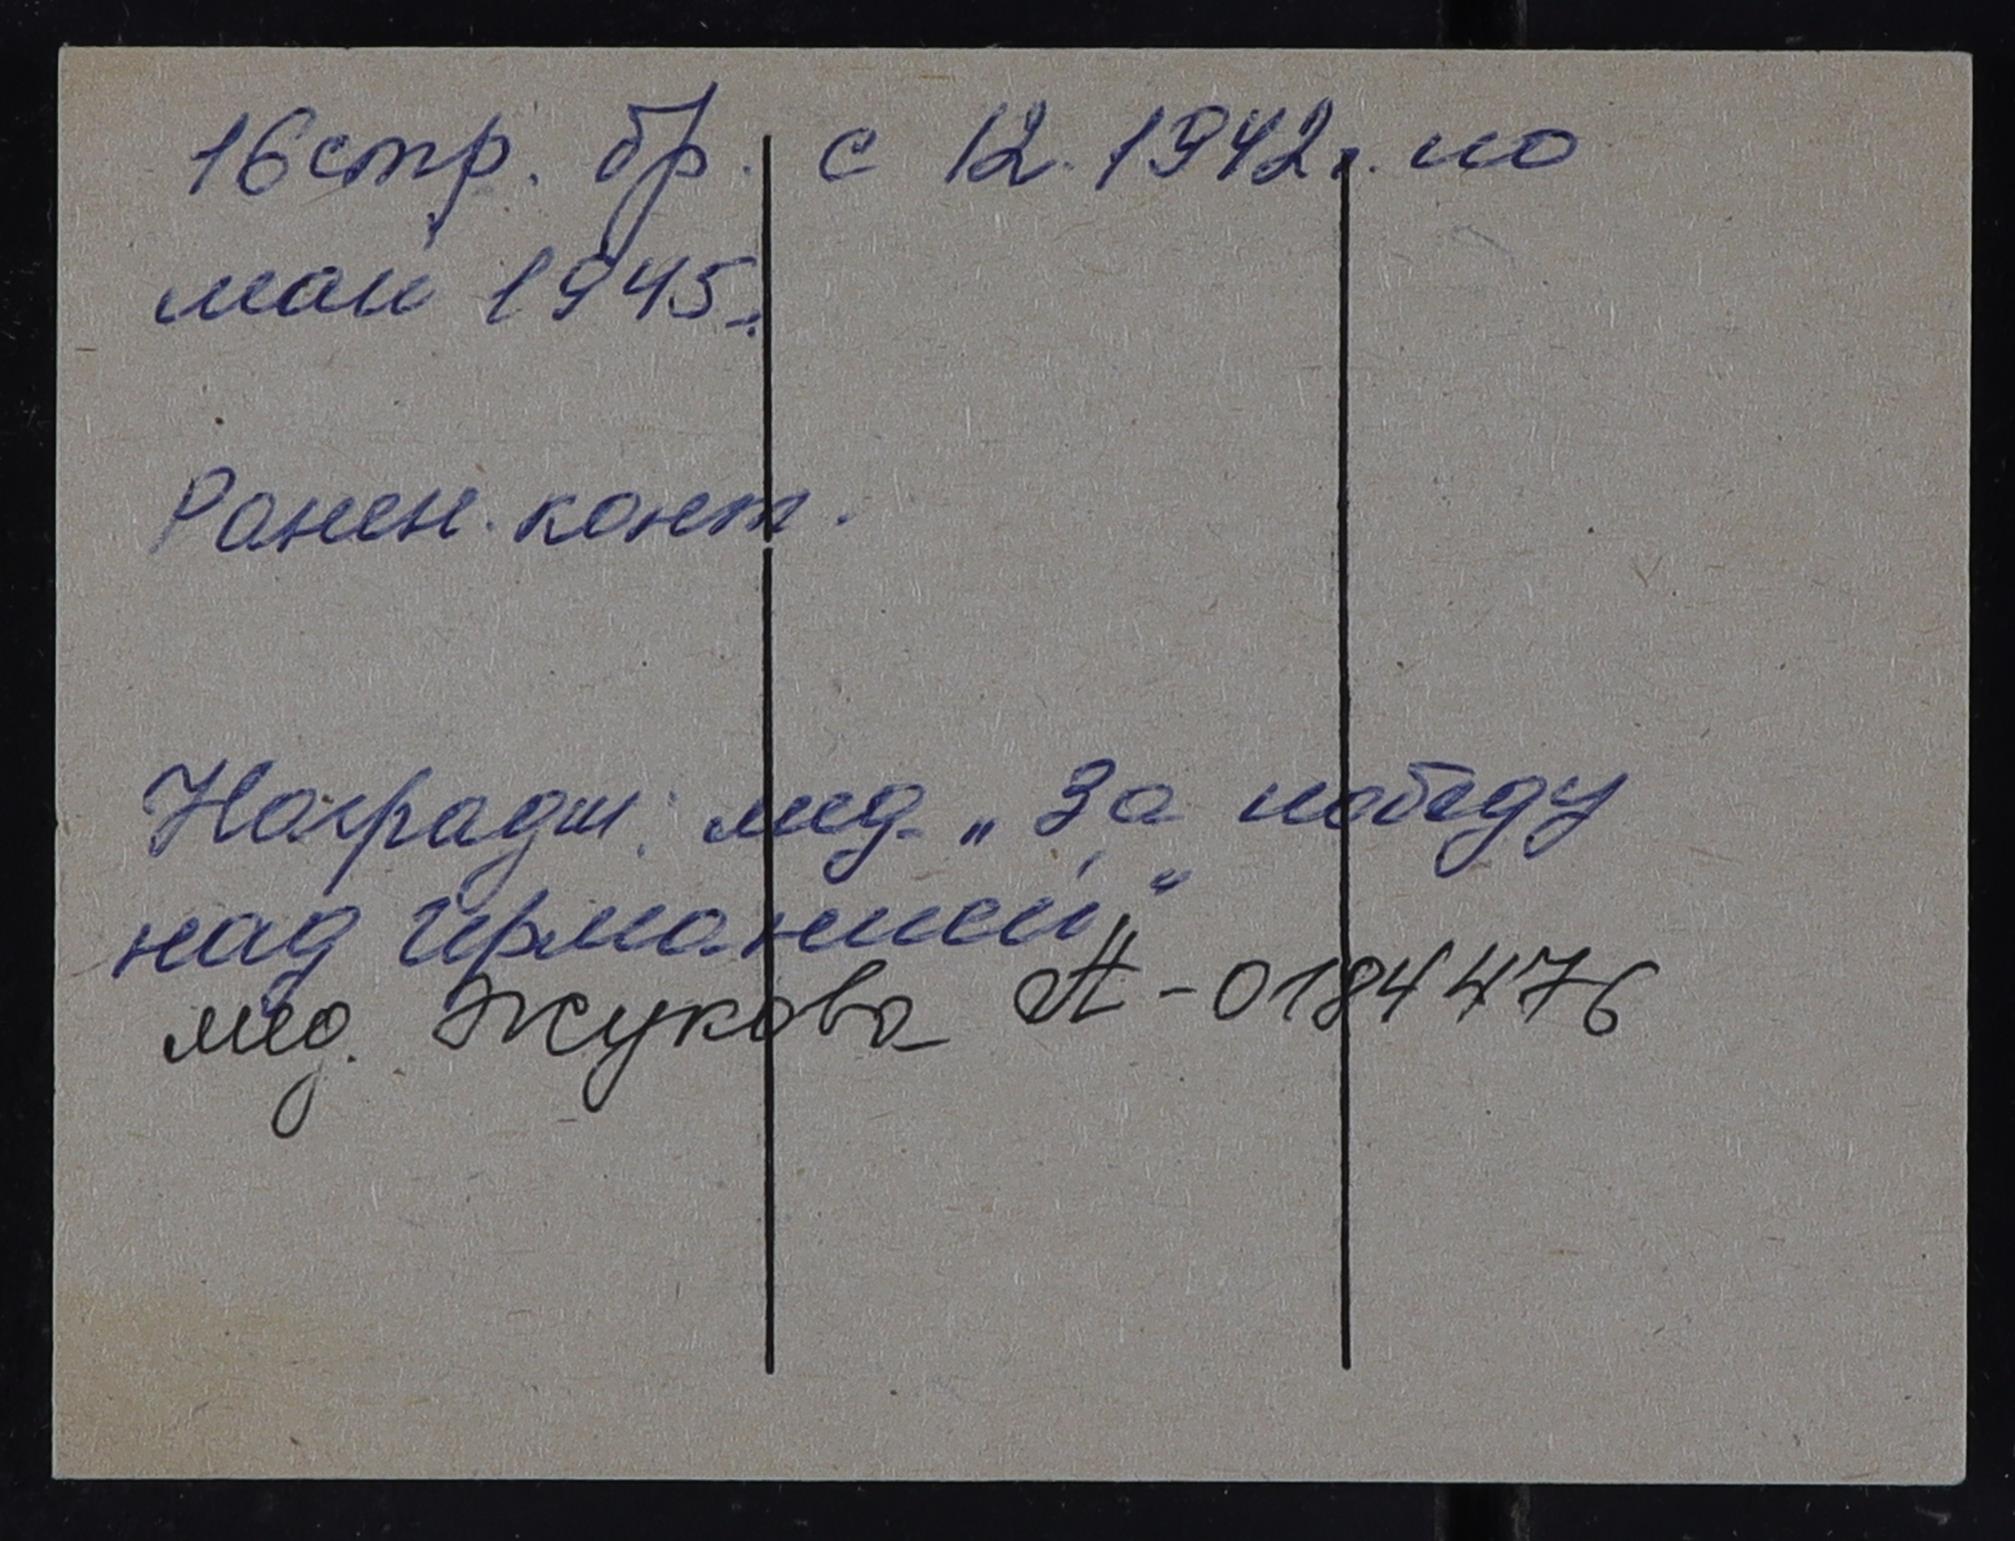 16 стр. бр. с 12.1942г. по
май 1945г.
Ранен. конт.
Награды: мед. „За победу
над Германией"
мед. Жукова А-0184476